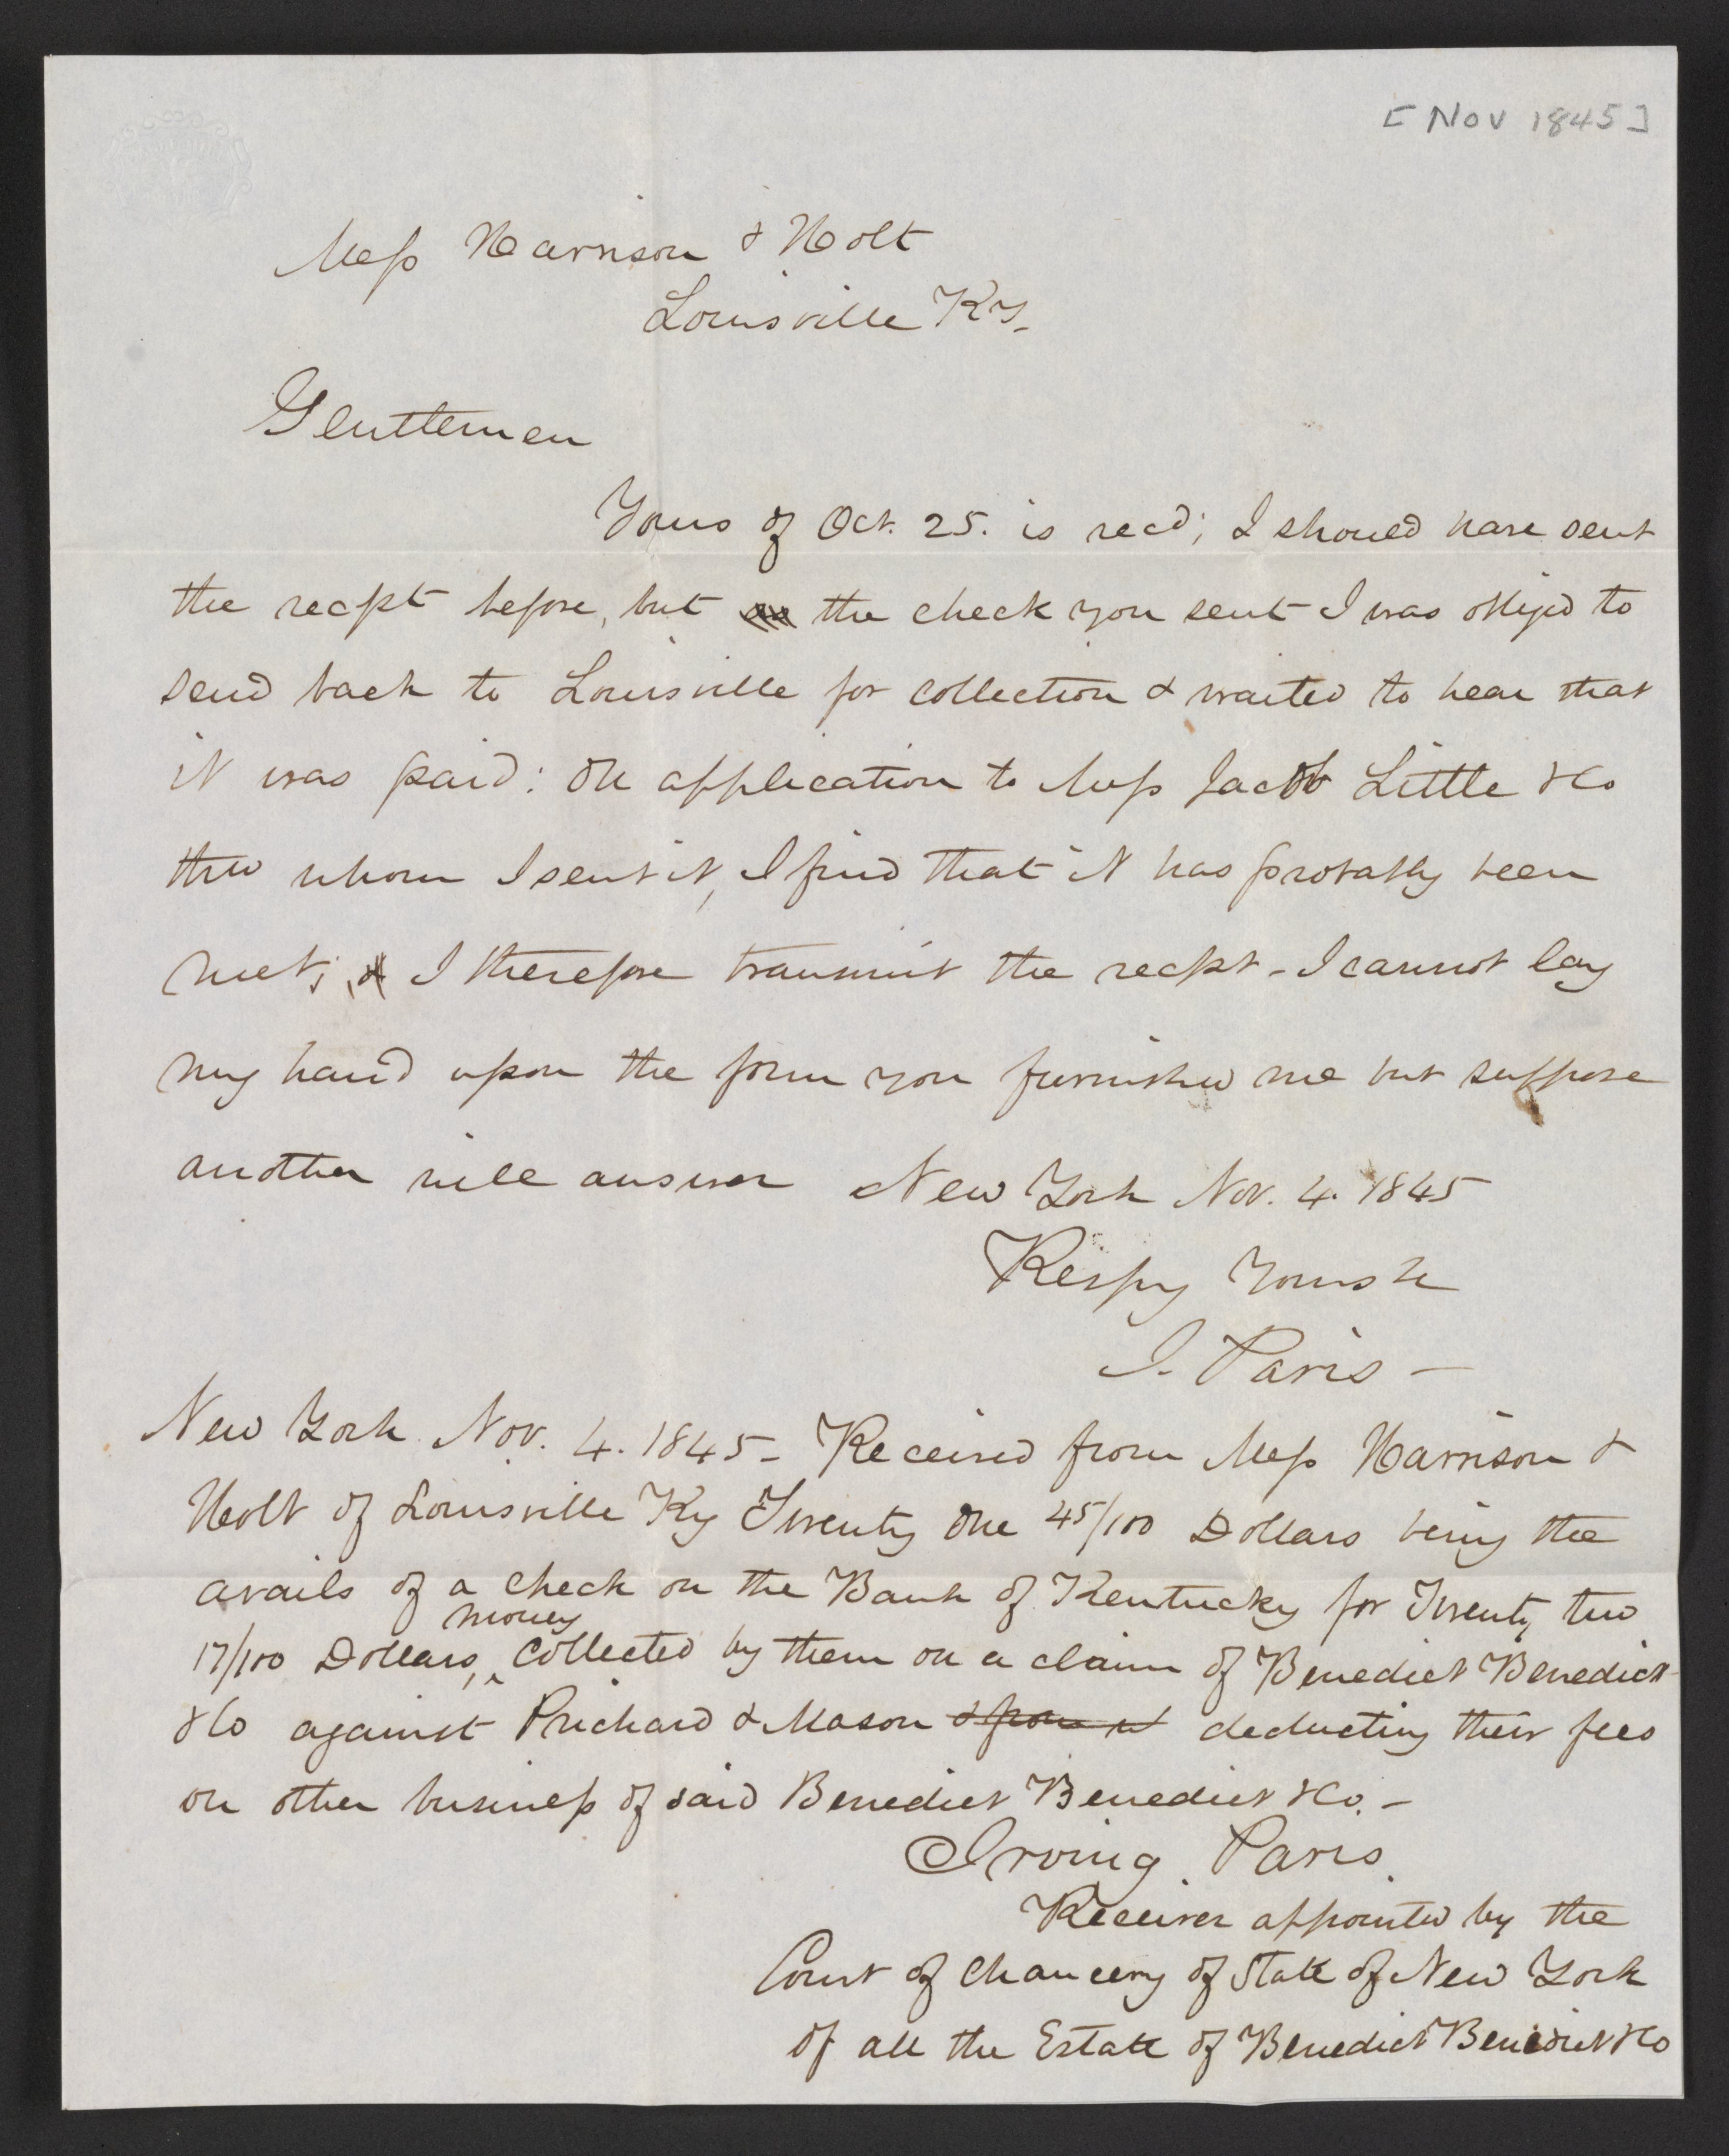 [Nov 1845]
Mess Harrison & Holt
Louisville Ky.
Gentlemen
Yours of Oct. 25. is recd; I should have sent
the recpt before, but the check you sent I was obliged to
send back to Louisville for collection & waited to hear that
it was paid: On application to Mess Jacob Little & Co
thro whom I sent it, I find that it has probably been
met; & I therefore transmit the recpt - I cannot lay
my hand upon the form you furnished me but suppose
another will answer New York Nov. 4. 1845
Respy Yours &c
I. Paris -
New York Nov. 4. 1845 - Received from Mess Harrison &
Holt of Louisville Ky Twenty One 45/100 Dollars being the
avails of a check on the Bank of Kentucky for Twenty two
17/100 Dollars, money collected by them on a claim of Benedict Benedict
& Co against Prichard & Mason & from it deducting their fees
on other business of said Benedict Benedict & Co. -
Irving Paris
Receiver appointed by the
Court of Chancery of State of New York
of all the Estate of Benedict Benedict & Co